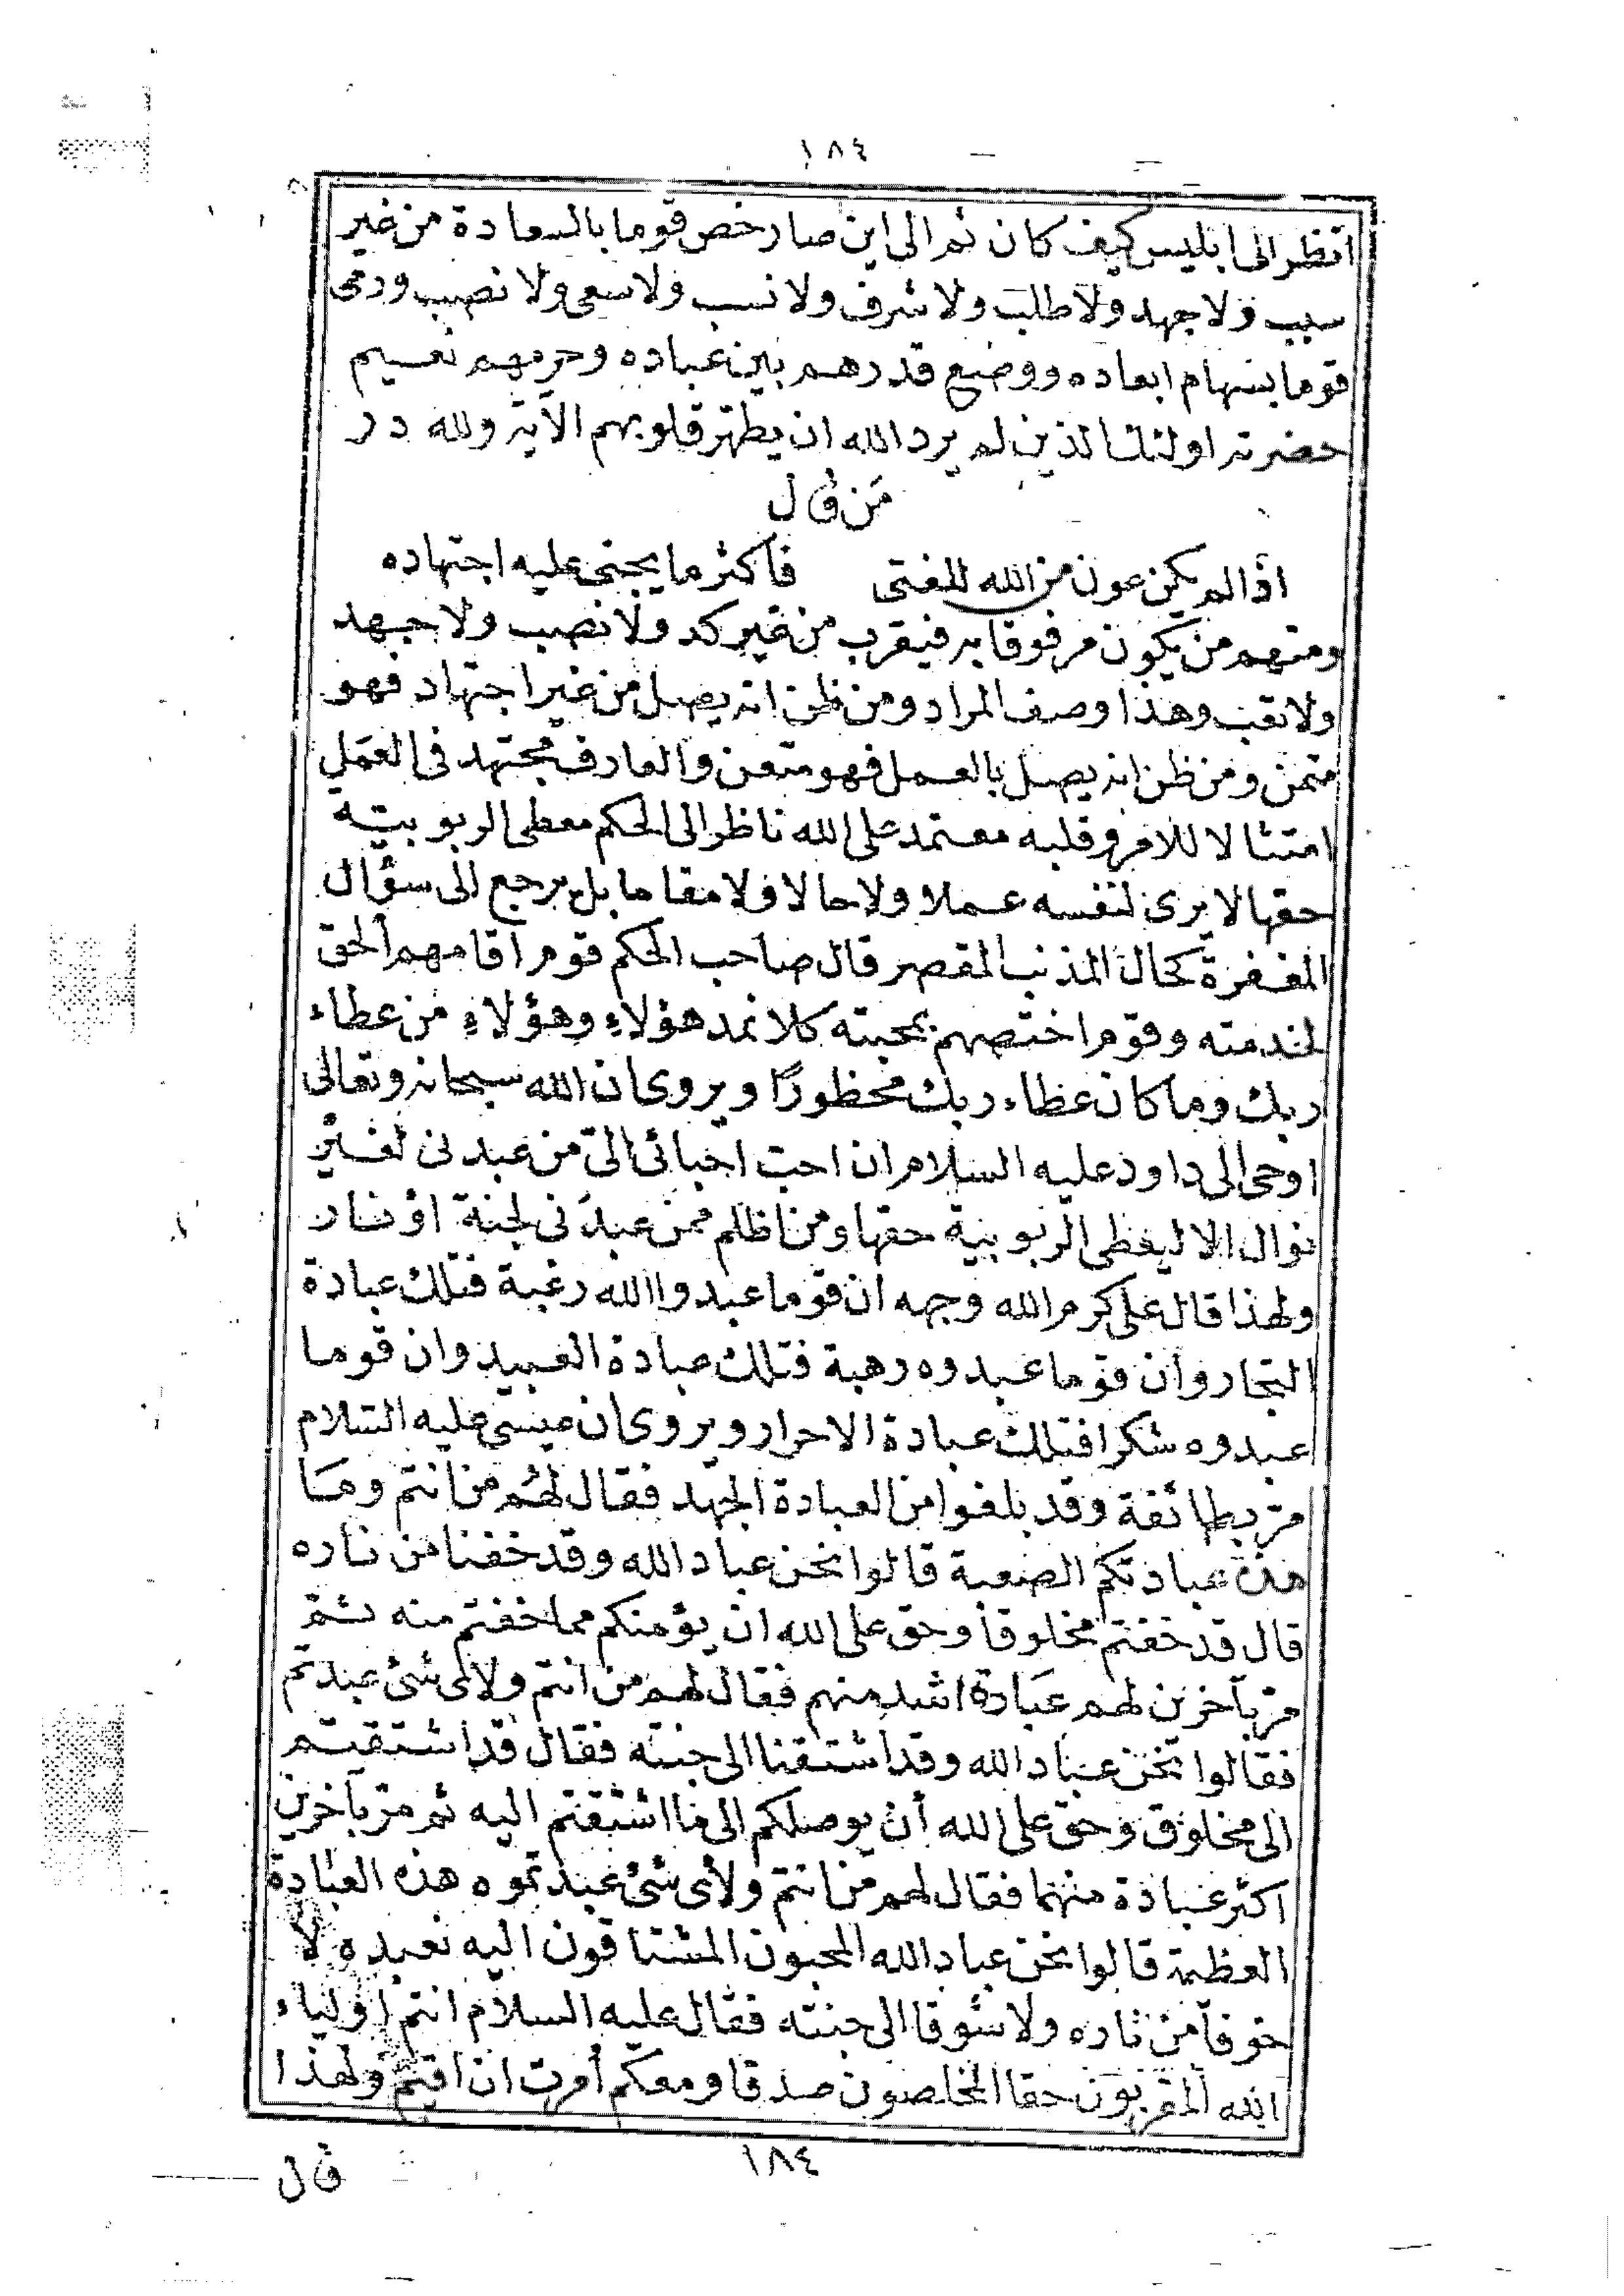 ١٨٤
انظر الى ابليس كيف كان ثم الى اين صار خص قوما بالسعادة من غير
سبب ولا جهد ولا طلب ولا شرف ولا نسب ولا سعى ولا نصب ورمى
قوما بسهام ابعاده ووضع قدرهم بين عباده وحرمهم نسيم
حضرته اولئك الذين لم يرد الله ان يطهر قلوبهم الآية ولله در
من قال
اذا لم يكن عون من الله للفتى فاكثر ما يجنى عليه اجتهاده
ومنهم من يكون مرفوقا به فيقرب من غير كد ولا نصب ولا جهد
ولا تعب وهذا وصف المراد ومن ظن انه يصل من غير اجتهاد فهو
متمن ومن ظن انه يصل بالعمل فهو متعن والعارف مجتهد فى العمل
امتثالا للامر وقلبه معتمد على الله ناظر الى الحكم معطى الربوبية
حقها لا يرى لنفسه عملا ولا حالا ولا مقاما بل يرجع الى سؤال
المغفرة كحال المذنب المقصر قال صاحب الحكم قوم اقامهم الحق
لخدمته وقوم اختصهم بمحبته كلا نمد هؤلاء وهؤلاء من عطاء
ربك وما كان عطاء ربك محظورًا ويروى ان الله سبحانه وتعالى
اوحى الى داود عليه السلام ان احب احبائى الىّ من عبدنى لغير
نوال الا ليعطى الربوبية حقها ومن اظلم ممن عبدنى لجنة او نار
ولهذا قال على كرم الله وجهه ان قوما عبدوا الله رغبة فتلك عبادة
التجار وان قوما عبدوه رهبة فتلك عبادة العبيد وان قوما
عبدوه شكرا فتلك عبادة الاحرار ويروى ان عيسى عليه السلام
مرّ بطائفة وقد بلغوا من العبادة الجهد فقال لهم من انتم وما
هذه عبادتكم الصعبة قالوا نحن عباد الله وقد خفنا من ناره
قال قد خفتم مخلوقا وحق على الله ان يؤمنكم مما خفتم منه ثم
مرّ بآخرين لهم عبادة اشد منهم فقال لهم من انتم ولاى شئ عبدتم
فقالوا نحن عباد الله وقد اشتقنا الى جنته فقال قد اشتقتم
الى مخلوق وحق على الله أن يوصلكم الى ما اشتقتم اليه ثم مرّ بآخرين
اكثر عبادة منهما فقال لهم من انتم ولأى شئ عبدتموه هذه العبادة
العظيمة قالوا نحن عباد الله المحبون المشتاقون اليه نعبده لا
خوفا من ناره ولا شوقا الى جنته فقال عليه السلام انتم اولياء
الله المقربون حقا المخلصون صدقا ومعكم أمرت ان اقيم ولهذا
١٨٤
قال